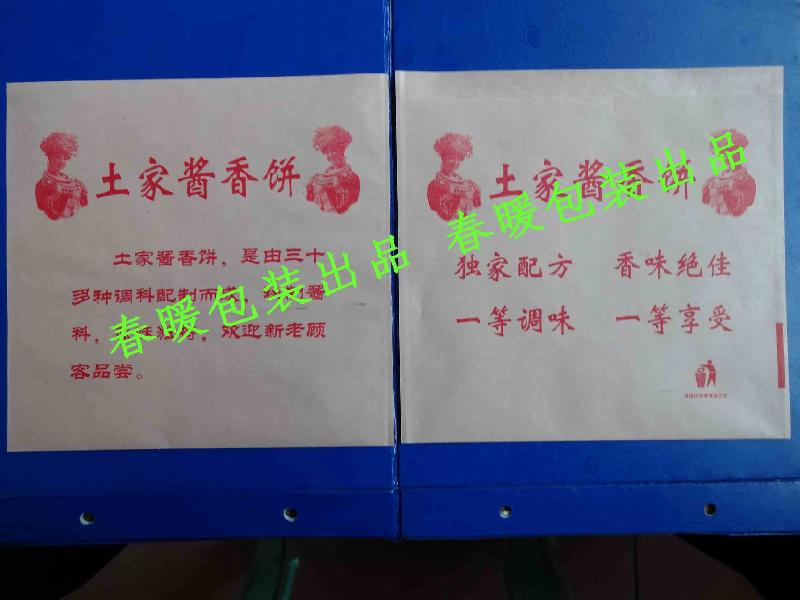 土家酱香饼
土家酱香饼，是由三十
多种调料配制而
酱
料，
，欢迎新老顾
客品尝。
春暖包装出品
土家酱香饼
独家配方 香味绝佳
一等调味 一等享受
春暖包装出品